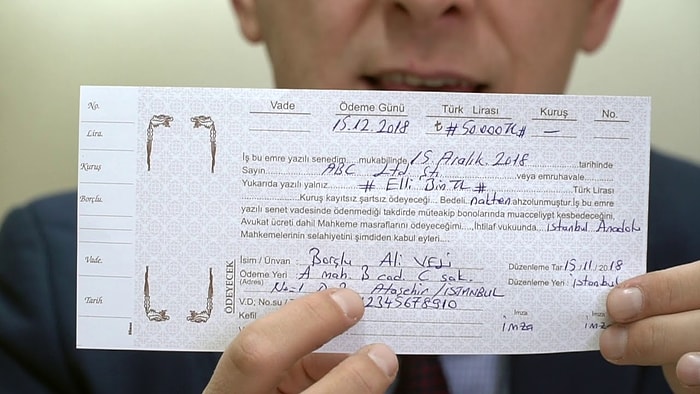 No.
Lira.
Kuruş
Borçlu.
Vade.
Tarih
Vade Ödeme Günü Türk Lirası Kuruş No.
15.12.2018 ₺ #50.000TL# —
İş bu emre yazılı senedim....mukabilinde 15 Aralık 2018 tarihinde
Sayın ABC Ltd Şti. veya emruhavale
Yukarıda yazılı yalnız # Elli Bin TL # Türk Lirası
Kuruş kayıtsız şartsız ödeyeceğ.... Bedeli nakten ahzolunmuştur.İş bu emre
yazılı senet vadesinde ödenmediği takdirde müteakip bonolarında muacceliyet kesbedeceğini,
Avukat ücreti dahil Mahkeme masraflarını ödemeyi ....İhtilaf vukuunda istanbul Anadolu
Mahkemelerinin selahiyetini şimdiden kabul eyleri....
ÖDEYECEK
İsim / Ünvan Borçlu Ali VELİ Düzenleme Tar. 15/11/2018
Ödeme Yeri A mah. B cad. C sok. Düzenleme Yeri : istanbul
(Adres) No=1 Ataşehir/İSTANBUL
V.D; No.su / 12345678910
Kefil İmza İmza
imza imza